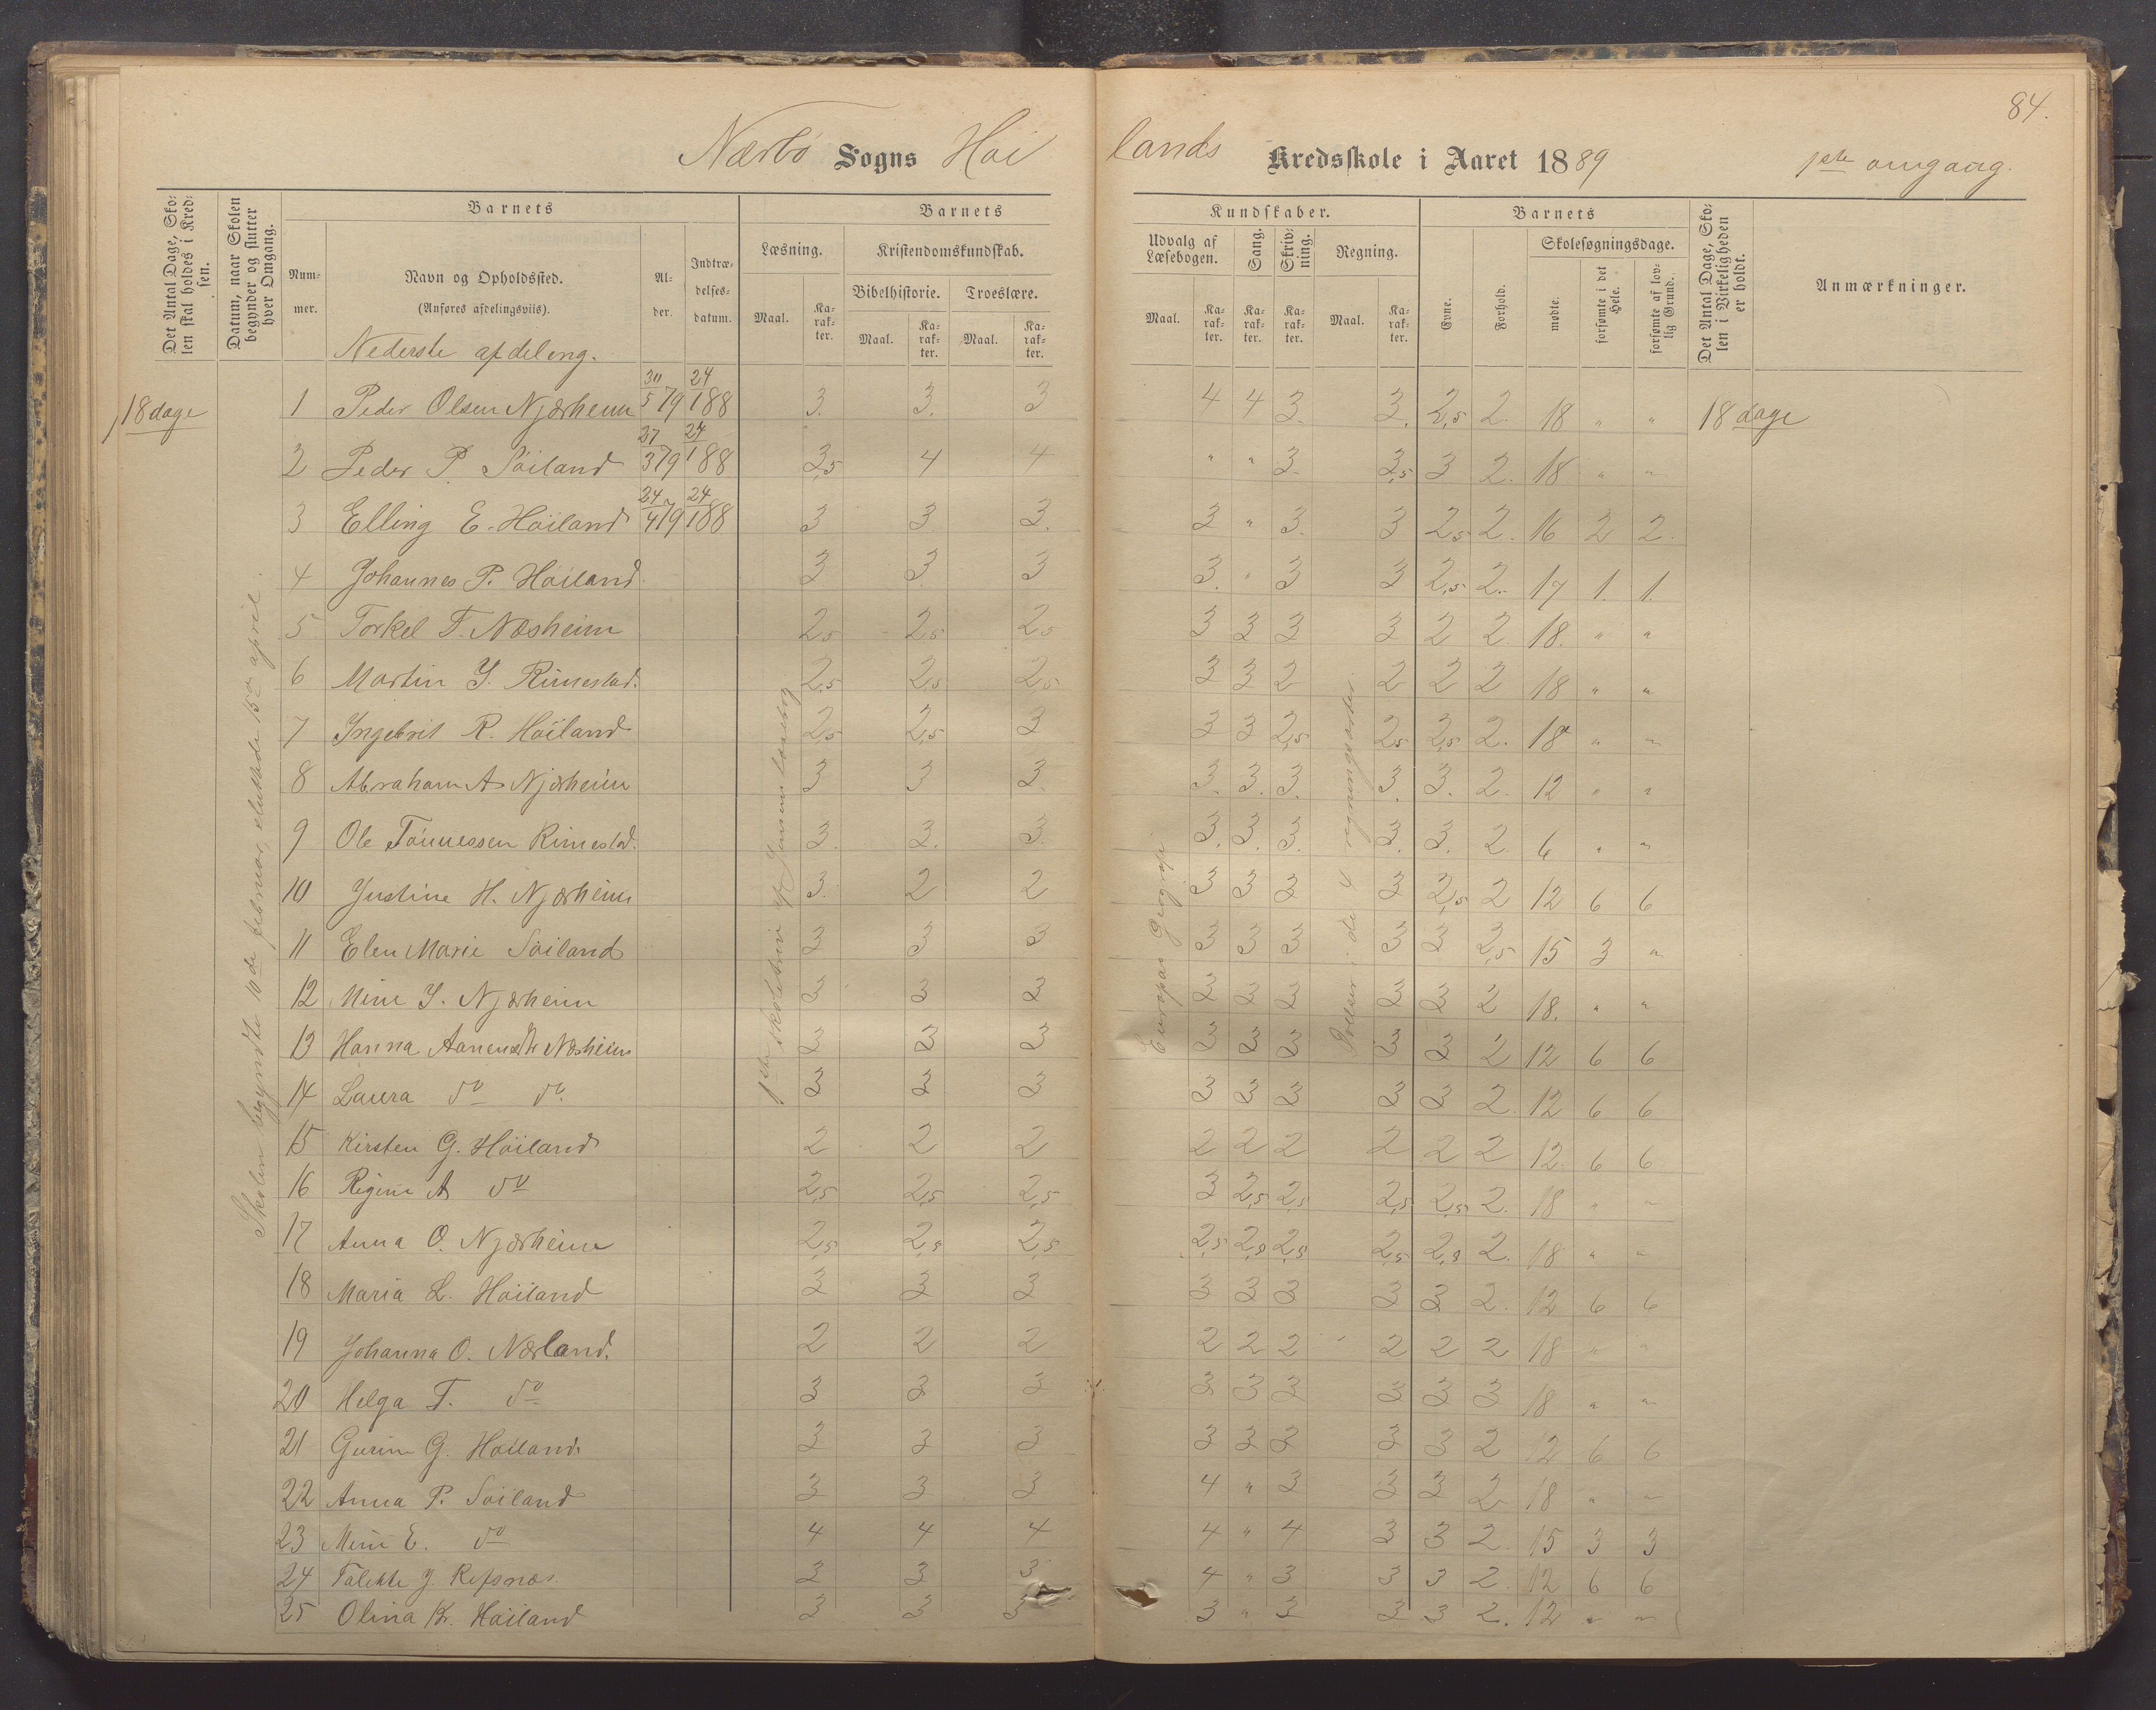 84.
Nærbø Sogns Høilands Kredsskole i Aaret 1889 1ste omgang.
Det Antal Dage, Skolen skal holdes i Kredsen.
Datum, naar Skolen begynder og slutter hver Omgang.
Barnets
Nummer.
Navn og Opholdssted.
(Anføres afdelingsviis).
Alder.
Indtrædelsesdatum.
Barnets Kundskaber.
Læsning. Kristendomskundskab. Udvalg af Læsebogen. Sang. Skrivning. Regning.
Bibelhistorie. Troeslære.
Maal. Karakter. Maal. Karakter. Maal. Karakter. Maal. Karakter. Karakter. Karakter. Maal. Karakter.
Barnets
Evne. Forhold. Skolesøgningsdage.
mødte. forsømte i det Hele. forsømte af lovlig Grund.
Det Antal Dage, Skolen i Virkeligheden er holdt.
Anmærkninger.
Nederste afdeling.
18 dage 1 Peder Olsen Njærheim 30/5 79 24/1 88 3. 3. 3 4 4 3. 3. 2,5 2. 18 " " 18 dage
2 Peder P. Søiland 27/3 79 24/1 88 3,5 4 4 " " 3. 3,5 3 2. 18 " "
3 Elling E. Høiland 24/4 79 24/1 88 3 3 3. 3 " 3. 3 2,5 2. 16 2 2.
4 Johannes P. Høiland. 3 3 3 3. " 3 3 2,5 2. 17 1. 1.
5 Torkel T. Næsheim 2,5 2,5 2,5 3 3 3 3 2 2. 18. " "
6 Martin Y. Rimestad. 2,5 2,5 2,5 3 3 2 2 2 2 18 " "
7 Ingebrit R. Høiland 2,5 2,5 3 3 3 2,5 2,5 2,5 2. 18 " "
8 Abraham A Njærheim 3 3 3. 3. 3. 3. 3. 3. 2. 12 " "
9 Ole Tønnessen Rimestad. 3. 3. 3. 3. 3. 3. 3. 3. 2. 6 " "
10 Justine H. Njærheim 3. 2 2 3 3 3 3 2,5 2 12 6 6
11 Elen Marie Søiland 3 3 3 3 3 3 3 3 2,5 15 3 "
12 Mine Y. Njærheim 3 3 3 3 3 3 3 3 2 18. " "
13 Hanna Aanensdtr Næsheim 3 3 3 3 3 3 3 3 2 12 6 6
14 Laura do do. 3 3 3 3 3 3 3 3 2. 12 6 6
15 Kirsten G. Høiland 2 2 2 2 2 2 2 2 2 12 6 6
16 Regine A do 2,5 2,5 2,5 3 2,5 2,5 2,5 2,5 2. 18 " "
17 Anna O. Njærheim 2,5 2,5 2,5 2,5 2,5 2,5 2,5 2,5 2. 18 " "
18 Maria L. Høiland 3 3 3 3 3 3 3 3 2. 12 6 6
19 Johanna O. Nærland. 2 2 2 2 2 2 2 2 2 18 " "
20 Helga T. do 3 3 3 3 3 3 3 3 3 18 " "
21 Gurine G. Høiland. 3 3 3 3 3 3 3 3 2 12 6 6
22 Anna P. Søiland 3 3 3 4 " 3 3 3 2 18 " "
23 Mine E. do 4 4 4 4 " 4 3 3 2. 15 3 3
24 Talette J. Refsnæs. 3 3 3 4 " 3 3 3 2. 12 6 6
25 Olina Kr. Høiland 3 3 3 3 " 3 3 3 2. 12 " "
Skolen begyndte 10de februar, sluttede 15de april.
1ste skoletrin af Jensens læsebog
Europas Geografi
Øvelser i de 4 regningsarter.